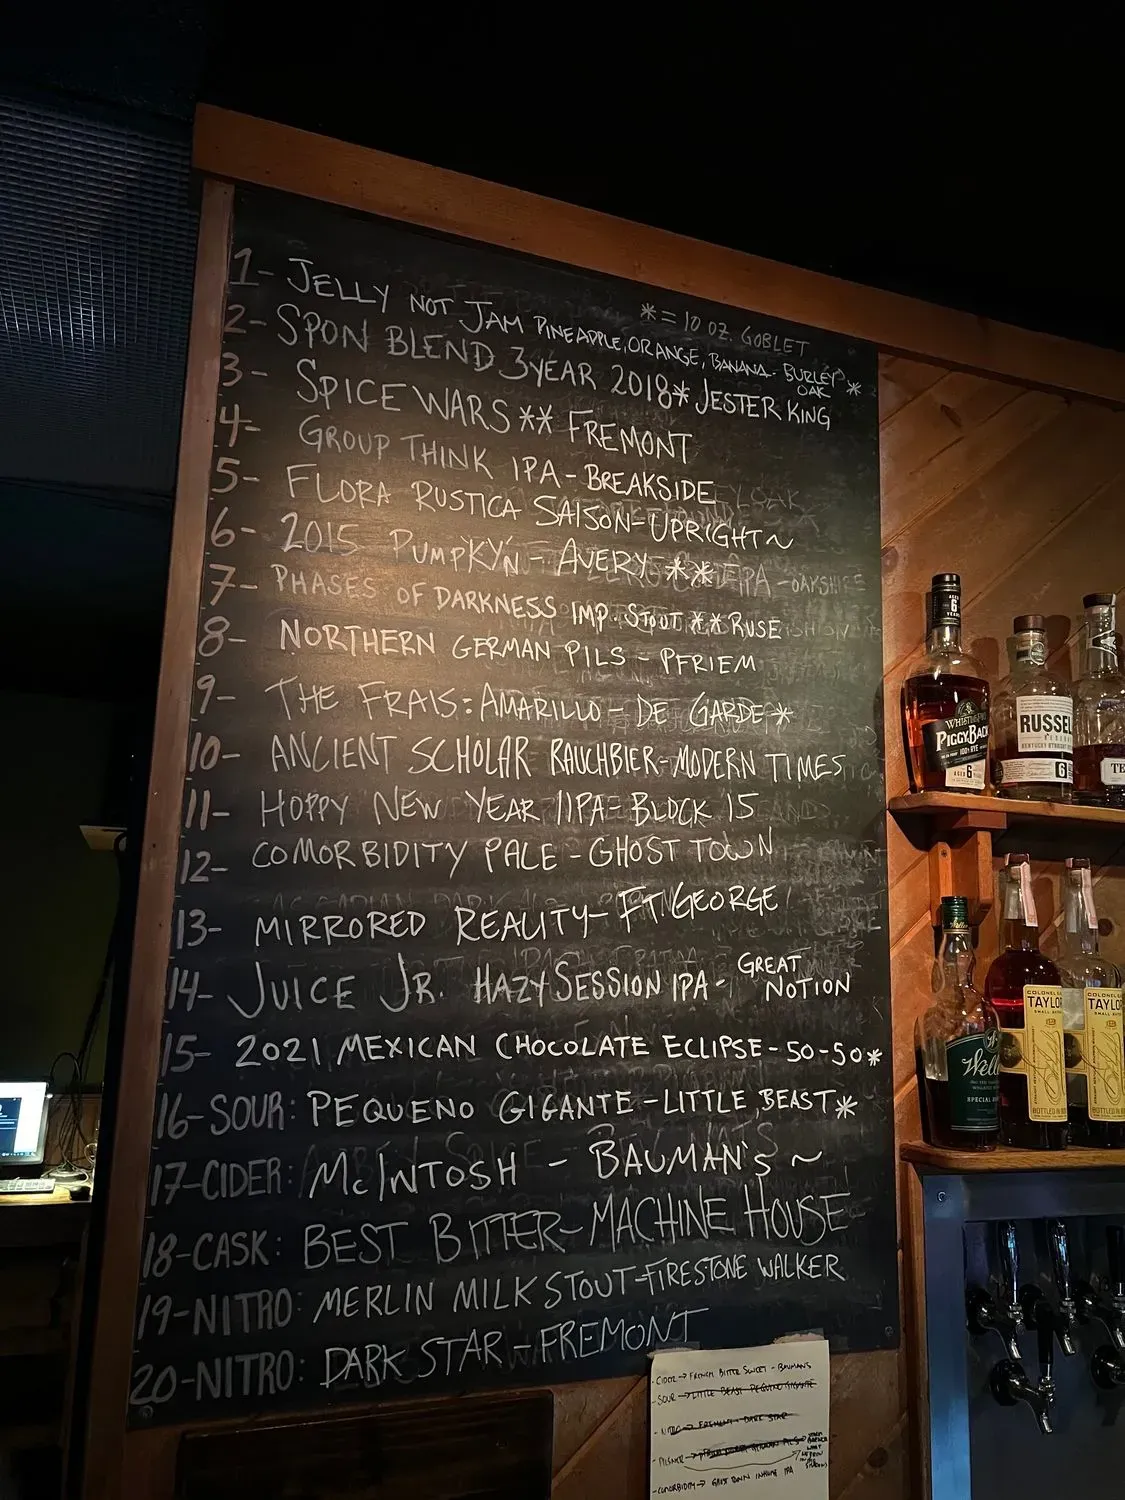 * = 10 OZ. GOBLET
1- JELLY NOT JAM PINEAPPLE, ORANGE, BANANA - BURLEY OAK *
2- SPON BLEND 3 YEAR 2018 * JESTER KING
3- SPICE WARS ** FREMONT
4- GROUP THINK IPA - BREAKSIDE
5- FLORA RUSTICA SAISON - UPRIGHT ~
6- 2015 PUMPKY'N - AVERY **
7- PHASES OF DARKNESS IMP. STOUT ** RUSE
8- NORTHERN GERMAN PILS - PFRIEM
9- THE FRAIS: AMARILLO - DE GARDE *
10- ANCIENT SCHOLAR RAUCHBIER - MODERN TIMES
11- HOPPY NEW YEAR IIPA - BLOCK 15
12- COMORBIDITY PALE - GHOST TOWN
13- MIRRORED REALITY - FT. GEORGE
14- JUICE JR. HAZY SESSION IPA - GREAT NOTION
15- 2021 MEXICAN CHOCOLATE ECLIPSE - 50-50 *
16- SOUR: PEQUENO GIGANTE - LITTLE BEAST *
17- CIDER: McINTOSH - BAUMAN'S ~
18- CASK: BEST BITTER - MACHINE HOUSE
19- NITRO: MERLIN MILK STOUT - FIRESTONE WALKER
20- NITRO: DARK STAR - FREMONT
- CIDER → FRENCH BITTER SWEET - BAUMANS
- SOUR → LITTLE BEAST PEQUENO GIGANTE
- NITRO → FREMONT - DARK STAR
- PILSNER → GERMAN PILS
- COMORBIDITY → GHOST TOWN IPA
WHISTLEPIG
PIGGYBACK
100% RYE
AGED 6
RUSSEL
KENTUCKY STRAIGHT
6
TE
Welle
SPECIAL
COLONEL
TAYLO
SMALL
BOTTLED IN B
COLONEL
TAYLO
SMALL
BOTTLED IN